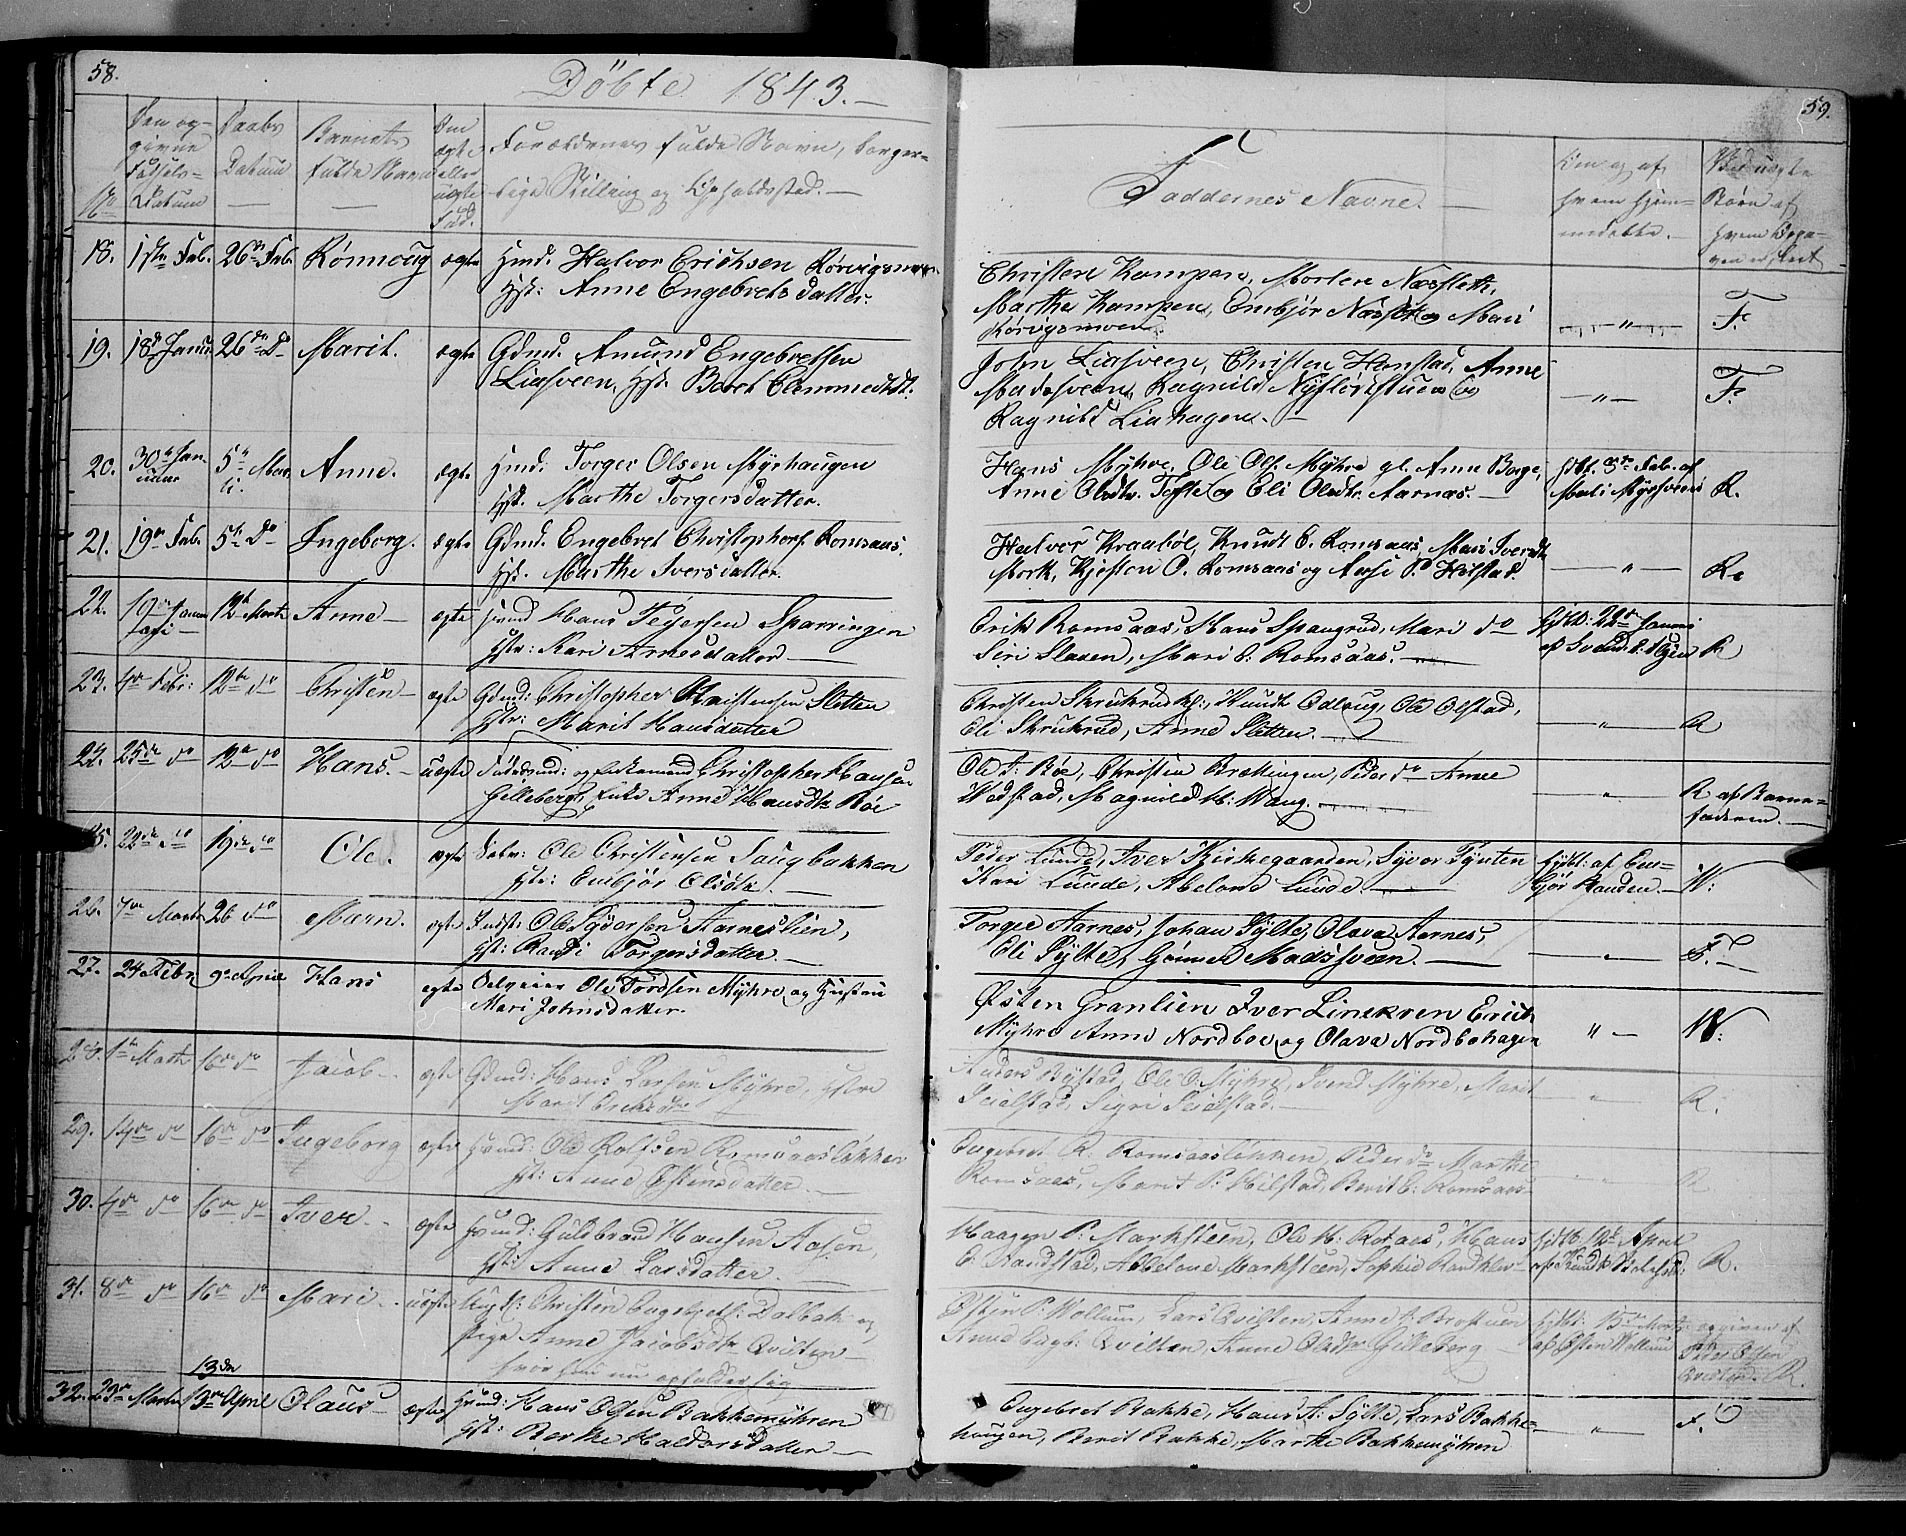 58.
Döbte 1843.
No
Den op-
givne
Fødsels-
Datum
Daabs
Datum
Barnets
fulde Navn
Om
ægte
eller
uægte
Fød.
Forældrenes fulde Navn, borger-
lige Stilling og Opholdssted.
18. 1ste Feb. 26de Feb. Rønnoug ægte Hmd. Halvor Erichsen Rørvigsmoen
Hst: Anne Engebretsdatter.
19. 18de Janu 26de Do Marit. ægte Gdmd. Amund Engebretsen
Liasveen, Hst. Beret Clemmedtdt.
20. 30te Jan-
uuar 5te Mar-
ti. Anne. ægte Hmd: Torger Olsen Myrhaugen
Hst. Marthe Torgersdatter.
21. 19de Feb. 5te Do Ingeborg. ægte Gdmd. Engebret Christophers. Romsaas.
Hst. Marthe Iversdatter.
22. 19de Janu 12te Marts Anne ægte Hmd Hans Pedersen Sparringen
Hstr: Kari Arnesdatter
23. 4de Febr: 12te do Christen ægte Gdmd: Christopher Christensen Sletten
Hstr: Marit Hansdatter
24. 25de do 12te do Hans. uægte og Enkemand Christopher Hansen
Gilleberg, Enke Anne Hansdtr Böe
25. 22de do 19de do Ole. ægte Ole Christensen Haugbakken
Hst: Embjør Olsdtr.
26. 7de Marts 26 do Marn. ægte Indst: Ole Syversen Aarneslien,
Hst: Randi Torgersdatter
27. 24 Febr 9de April Hans ægte Ole Tordsen Myhre og Hustru
Mari Johnsdatter.
28. 1ste Marts 16de do Jacob ægte Gdmd: Hans Larsen Myhre, Hstru
Marit Ericksdtr
29. 14de do 16de do Ingeborg ægte Hmd: Ole Rolfsen Romsaaslökken
Hst: Anne Østensdatter.
30. 4de do 16de do Iver ægte Hmd: Guldbrand Hansen Aasen,
Hst: Anne Larsdatter.
31. 8de do 16de do Mari uægte Ungk: Christen Engebrets: Dalbak og
Pige Anne Jacobsdtr Qvilten
hvor hun nu opholder sig
13de
32. 23de Martii 13de April Olaus ægte Hmd: Hans Olsen Bakkemyhren
Hst: Berthe Haldorsdatter
59.
Faddernes Navne.
Om og af
hvem hjem-
medøbt.
Ved uægte
Børn af
hvem Opga-
ven er skeet
Christen Kampen, Morten Næsseth,
Marthe Kampen, Embjør Næsset og Mari
Rørvigsmoen. " F.
John Liasveen, Christen Hemstad, Anne
Madssveen, Ragnild Nyflodstuen og
Ragnild Liahagen. " F.
Hans Myhre, Ole Ols. Myhre gl. Anne Borge,
Anne Olsdtr. Tofte og Eli Olsdtr. Aarnæs. hdbt. 3de Feb. af
Mari Myrsveen R.
Halvor Kraabøl, Knudt C. Romsaas, Mari Iversdtr
Mork, Kjersten O. Romsaas og Aase P. Hilstad. " R.
Erik Romsaas, Hans Spangrud, Mari do
Siri Slaaen, Mari E: Romsaas. hjdb: 22de Januar
af Svend R
Christen Skrukrud, Knudt Odloug, Ole Olstad,
Eli Skrukrud, Anne Sletten. " R
Ole A: Böe, Christen Brættingen, Peder do Anne
Wedstad, Magnild H: Haug. " R af Barne-
faderen.
Peder Lunde, Iver Kirkegaarden, Syver Tynten
Kari Lunde, Abelone Lunde. hjdbt: af Em-
bjør W.
Torger Aarnes, Johan Sylte, Olava Aarnes,
Eli Sylte, Gunner Madssveen. " F.
Østen Granlien Iver Linekren Erich
Myhre Anne Nordboe og Olava Nordbohagen " W.
Anders Bystad, Ole O: Myhre, Svend Myhre, Marit
Seielstad, Sigri Seielstad. " R.
Engebret R. Romsaaslökken, Peder do Marthe
Romsaas, Marit P. Hilstad, Berit E: Romsaas " R.
Haagen P: Marksteen, Ole H: Rotaas, Hans
E: Randstad, Abelone Marksteen, Sophie Randklev hjdb: 12te April
af Knudt R.
Østen P: Wollum, Lars Qvilten, Anne J: Brostuen
Knud Engb: Qvilten, Anne Olsdtr Gilleberg hjdb: 15de Marts
af Østen Wollum opgiven af
Peder Olsen
R.
Engebret Bakke, Hans A: Sylte, Lars Bakke-
haugen, Berit Bakke, Marthe Bakkemyhren " F.